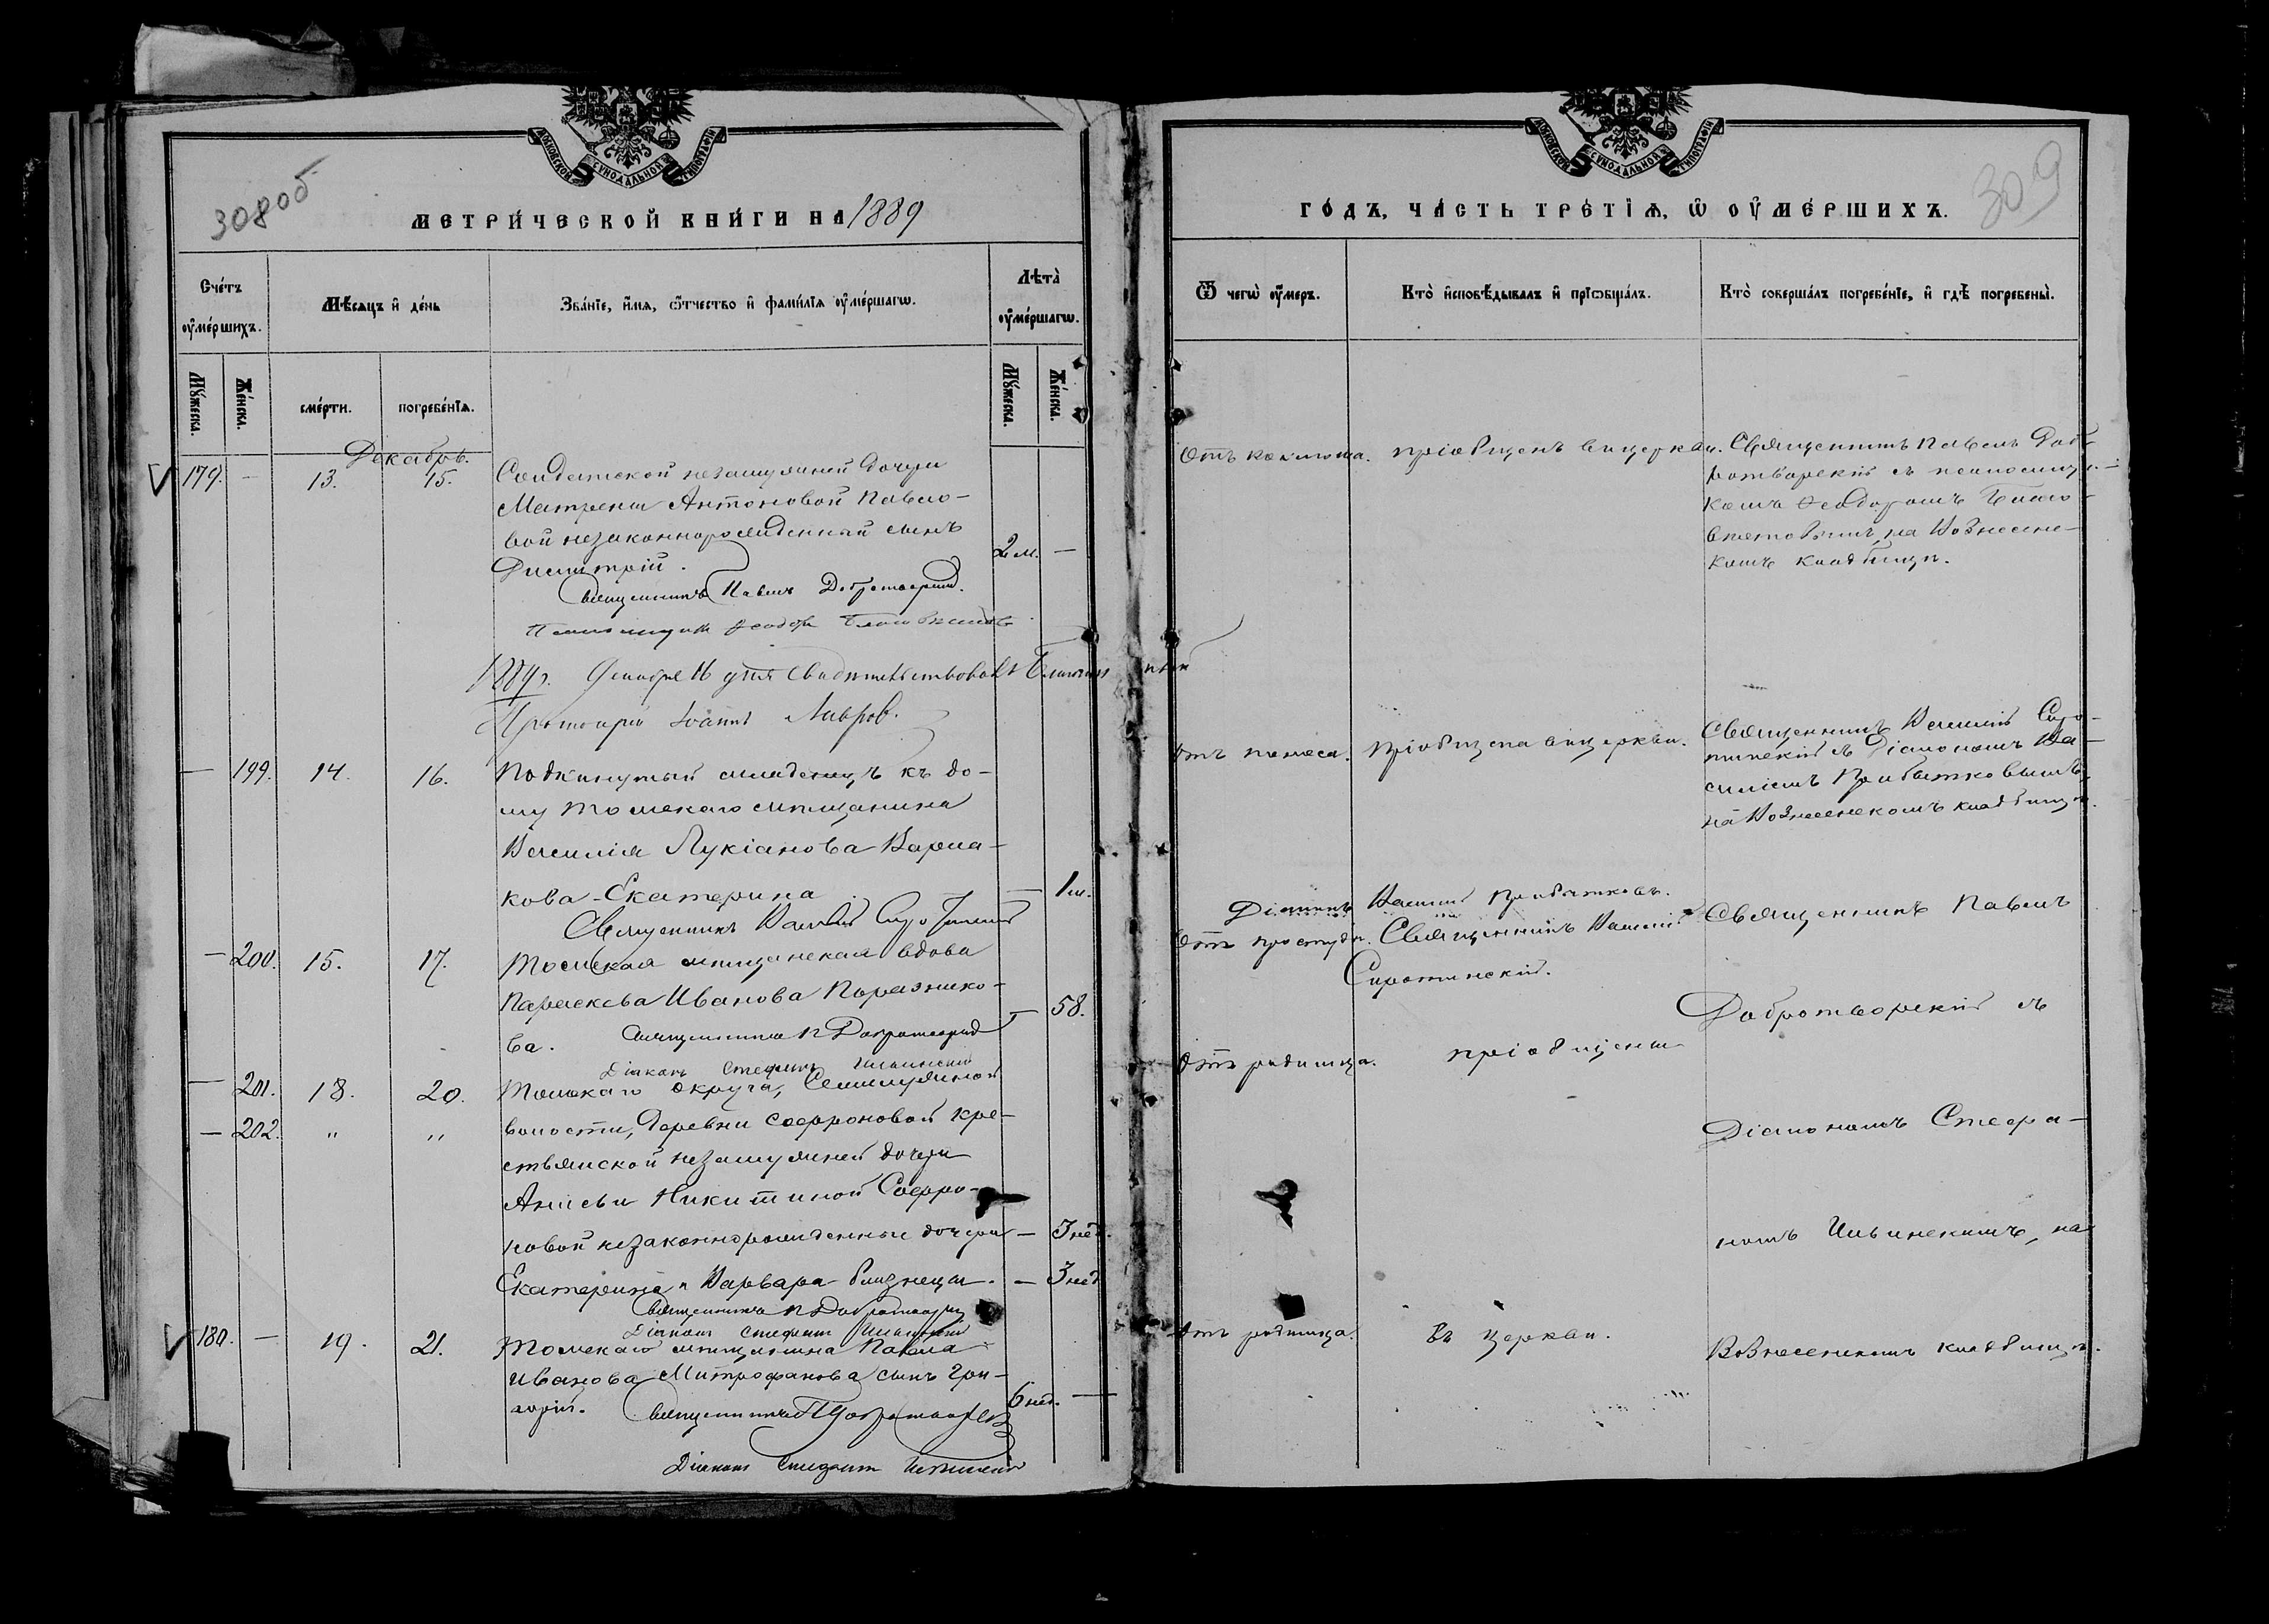 308об
МОСКОВСКОЙ СѴНОДАЛЬНОЙ ТИПОГРАФІИ
МЕТРИ́ЧЕСКОЙ КНИ́ГИ НА 1889
Сче́тъ ᲂу҆ме́ршихъ.
Мѣ́сяцъ и҆ де́нь
Зва́нїе, и҆́мѧ, ѻ҆́тчество и҆ фами́лїѧ ᲂу҆ме́ршагѡ.
Лѣта̀ ᲂу҆ме́ршагѡ.
Мꙋ́жеска.
Же́нска.
сме́рти.
погребе́нїѧ.
Мꙋ́жеска.
Же́нска.
Декабрь.
179. — 13. 15. Солдатской незамужней дочери
Матрены Антоновой Павло-
вой незаконнорожденный сынъ
Димитрій. 2 м. —
Священникъ Павелъ Добротворскій.
Псаломщикъ Ѳеодоръ
1889 г. Декабря 16 дня свидѣтельствовалъ Благочинный
Протоіерей Іоаннъ Лавровъ.
— 199. 14. 16. Подкинутый младенецъ къ до-
му Томскаго мѣщанина
Василія Лукіанова
кова - Екатерина — 1 м.
Священникъ Василій Сиротинскій
Діаконъ Василій Прибытковъ.
— 200. 15. 17. Томская мѣщанская вдова
Параскева Иванова
ва. — 58.
Священникъ П Добротворскій
Діаконъ Стефанъ Ильинскій
— 201. 18. 20. Томскаго округа, Семилужной
— 202. " " волости, деревни Софроновой кре-
стьянской незамужней дочери
Анисьи Никитиной Софро-
новой незаконнорожденные дочери — 3 нед.
Екатерина и Варвара близнецы. — 3 нед
Священникъ П Добротворскій
Діаконъ Стефанъ Ильинскій
180. — 19. 21. Томскаго мѣщанина Павла
Иванова Митрофанова сынъ Гри-
горій. 6 нед. —
Священникъ П Добротворскій
Діаконъ Стефанъ Ильинскій
309
МОСКОВСКОЙ СѴНОДАЛЬНОЙ ТИПОГРАФІИ
ГО́ДЪ, ЧА́СТЬ ТРЕ́ТЇѦ, Ѡ҆ ОУ҆МЕ́РШИХЪ.
Ѿ чегѡ̀ ᲂу҆́меръ.
Кто̀ и҆сповѣ́дывалъ и҆ прїѡбща́лъ.
Кто̀ соверша́лъ погребе́нїе, и҆ гдѣ̀ погребены̀.
Отъ коклюша. пріобщенъ въ церкви. Священникъ Павелъ Доб-
ротворскій съ псаломщи-
комъ Ѳеодоромъ
на Вознесенс-
комъ кладбищѣ.
Отъ поноса. пріобщена въ церкви. Священникъ Василій Сиро-
тинскій съ Діакономъ Ва-
силіемъ Прибытковымъ,
на Вознесенскомъ кладбищѣ.
Отъ простуды. Священникъ Василій
Сиротинскій.
Священникъ Павелъ
Добротворскій съ
Отъ родимца. пріобщены
Діакономъ Стефа-
номъ Ильинскимъ, на
Отъ родимца. въ церкви.
Вознесенскомъ кладбищѣ.